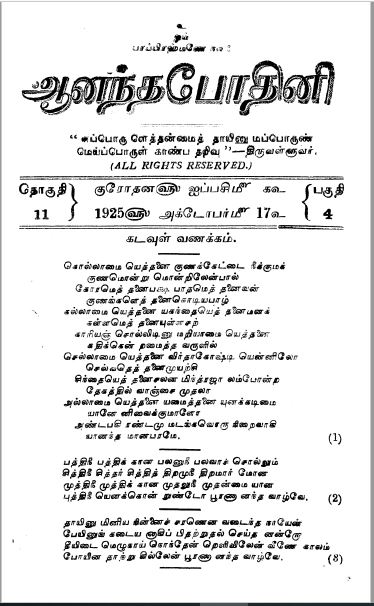 உ
ஓம்
பரப்பிரஹ்மணே நம:
ஆனந்தபோதினி
“எப்பொரு ளெத்தன்மைத் தாயினு மப்பொருண்
மெய்ப்பொருள் காண்ப தறிவு”—திருவள்ளுவர்.
(ALL RIGHTS RESERVED.)
தொகுதி 11
குரோதன௵ ஐப்பசி௴ க௳
1925௵ அக்டோபர்௴ 17௳
பகுதி 4
கடவுள் வணக்கம்.
கொல்லாமை யெத்தனை குணக்கேட்டை நீக்குமக்
குணமொன்று மொன்றிலேன்பால்
கோரமெத் தனைபக்ஷ பாதமெத் தனைவன்
குணங்களெத் தனைகொடியபாழ்
கல்லாமை யெத்தனை யகந்தையெத் தனைமனக்
கள்ளமெத் தனையுள்ளசற்
காரியஞ் சொல்லிடினு மறியாமை யெத்தனை
கதிக்கென் றமைத்த வருளில்
செல்லாமை யெத்தனை விர்தாகோஷ்டி யென்னிலோ
செல்வதெத் தனைமுயற்சி
சிந்தையெத் தனைசலன மிந்த்ரஜா லம்போன்ற
தேகத்தில் வாஞ்சை முதலா
அல்லாமை யெத்தனை யமைத்தனை யுனக்கடிமை
யானே னிவைக்குமாளோ
அண்டபகி ரண்டமு மடங்கவொரு நிறைவாகி
யானந்த மானபரமே. (1)
பத்திநீ பத்திக் கான பலனுநீ பலவாச் சொல்லும்
சித்திநீ சித்தர் சித்தித் திறமுநீ திறமார் மோன
முத்திநீ முத்திக் கான முதலுநீ முதன்மை யான
புத்திநீ யெனக்கொன் றுண்டோ பூரணா னந்த வாழ்வே. (2)
தாயினு மினிய நின்னைச் சரணென வடைந்த நாயேன்
பேயினுங் கடைய னாகிப் பிதற்றுதல் செய்த னன்றோ
தீயிடை மெழுகாய் நொந்தேன் றெளிவிலேன் வீணே காலம்
போயின தாற்று கில்லேன் பூரணா னந்த வாழ்வே. (3)